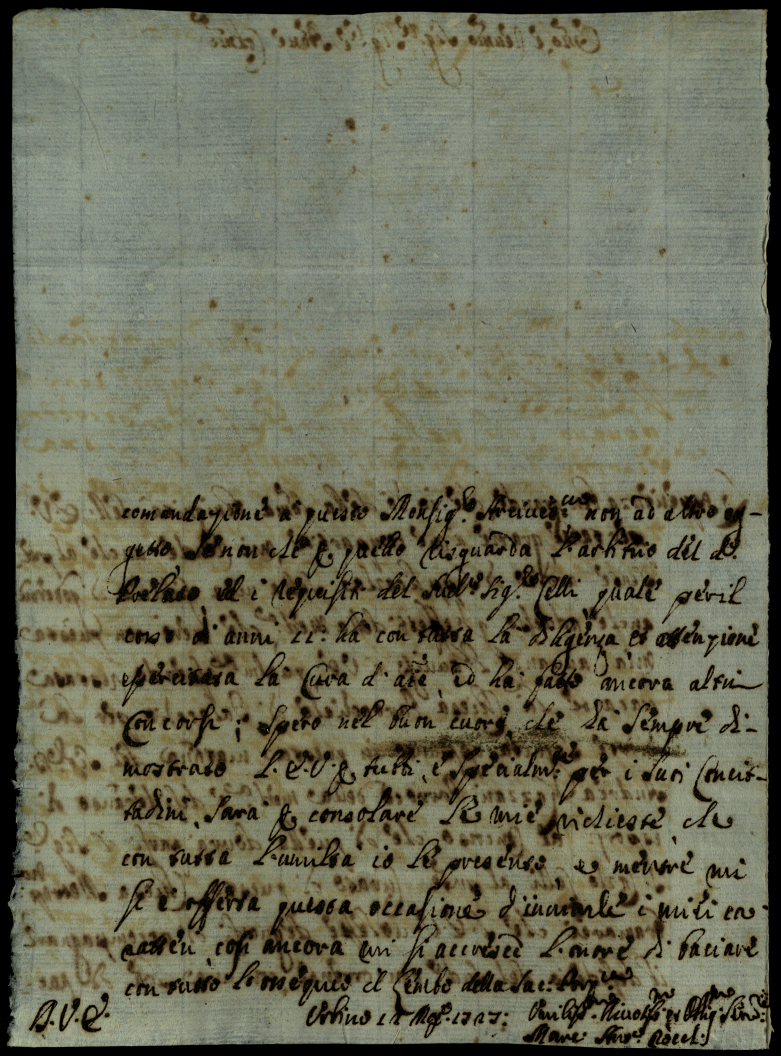 comendazione a questo Monsig.r Arcivesc.vo non ad altro og-
getto se non che p quello risguarda l'arbitrio del d.o
Prelato ed i requisiti del Sud.o Sig.r Celli quale per il
corso di anni 11: ha con tutta la diligenza et attenzione
esercitata la Cura d'ãie, ed ha fatto ancora altri
Concorsi; Spero nel buon cuore, che ha sempre di-
mostrato l'E.V. p tutti, e specialm.te per i suoi Concit-
tadini, sarà p consolare le mie richieste che
con tutta l'umiltà io le presento, e mentre mi
si è offerta questa occasione d'inviarle i miei ca-
ratteri, così ancora mi si accresce l'onore di baciare
con tutto l'ossequio il lembo della Sac: Porp.ra
D.V.E.
Urbino 12 1727:
Umiliss.mo Divotiss.mo et Obl.mo Serv.e
Marc' Ant.o